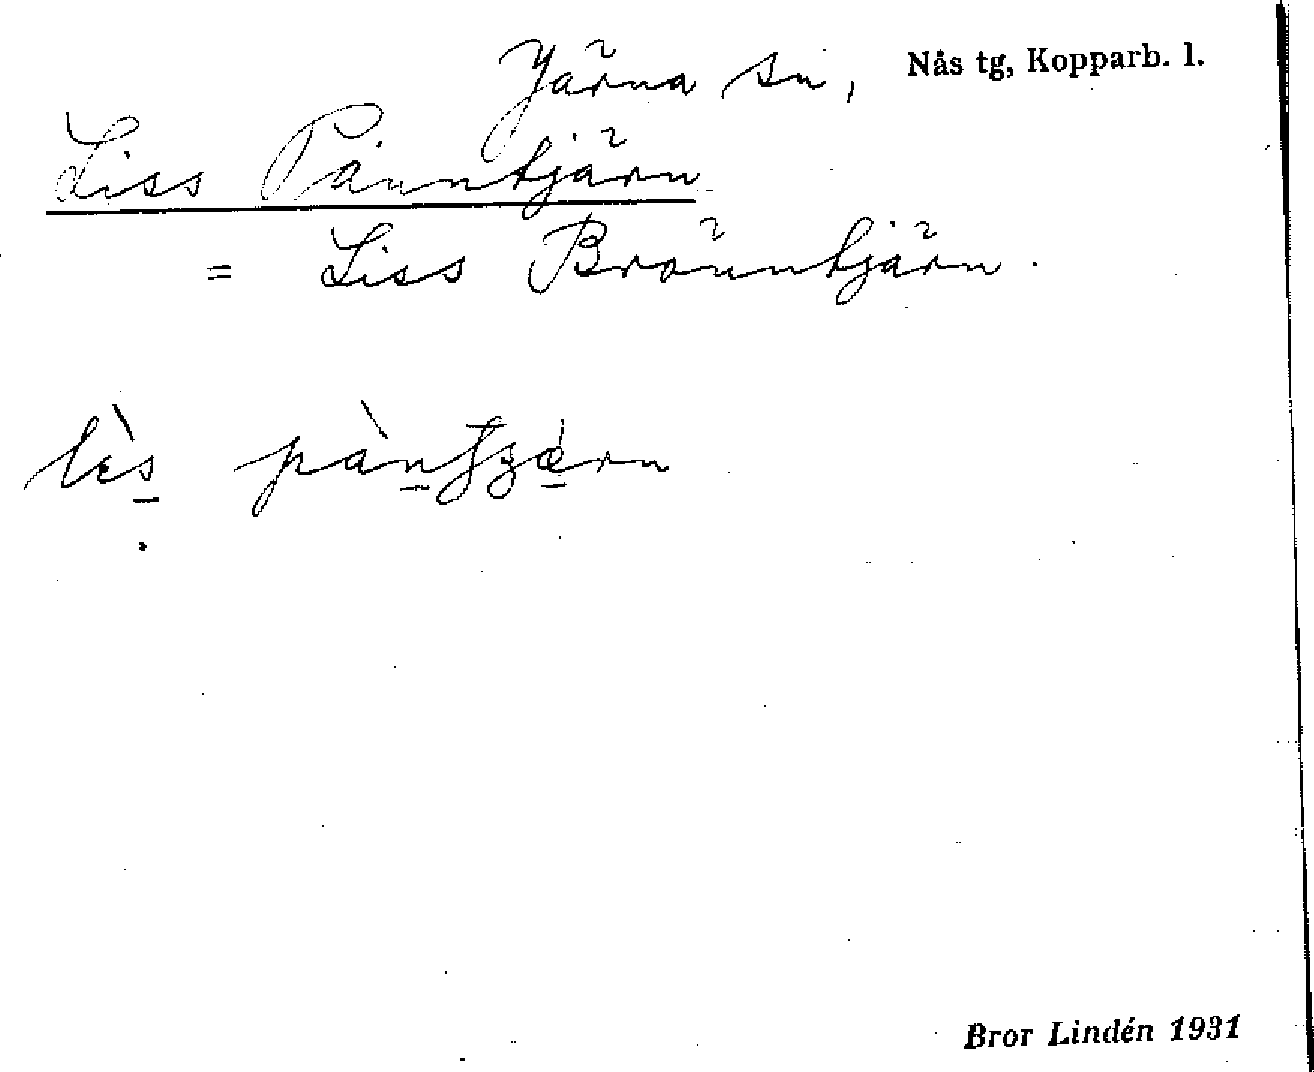 Järna sn, Nås tg, Kopparb. l.
Liss Pånntjärn
= Liss Brönntjärn.
lès pàntʃærn
Bror Lindén 1931